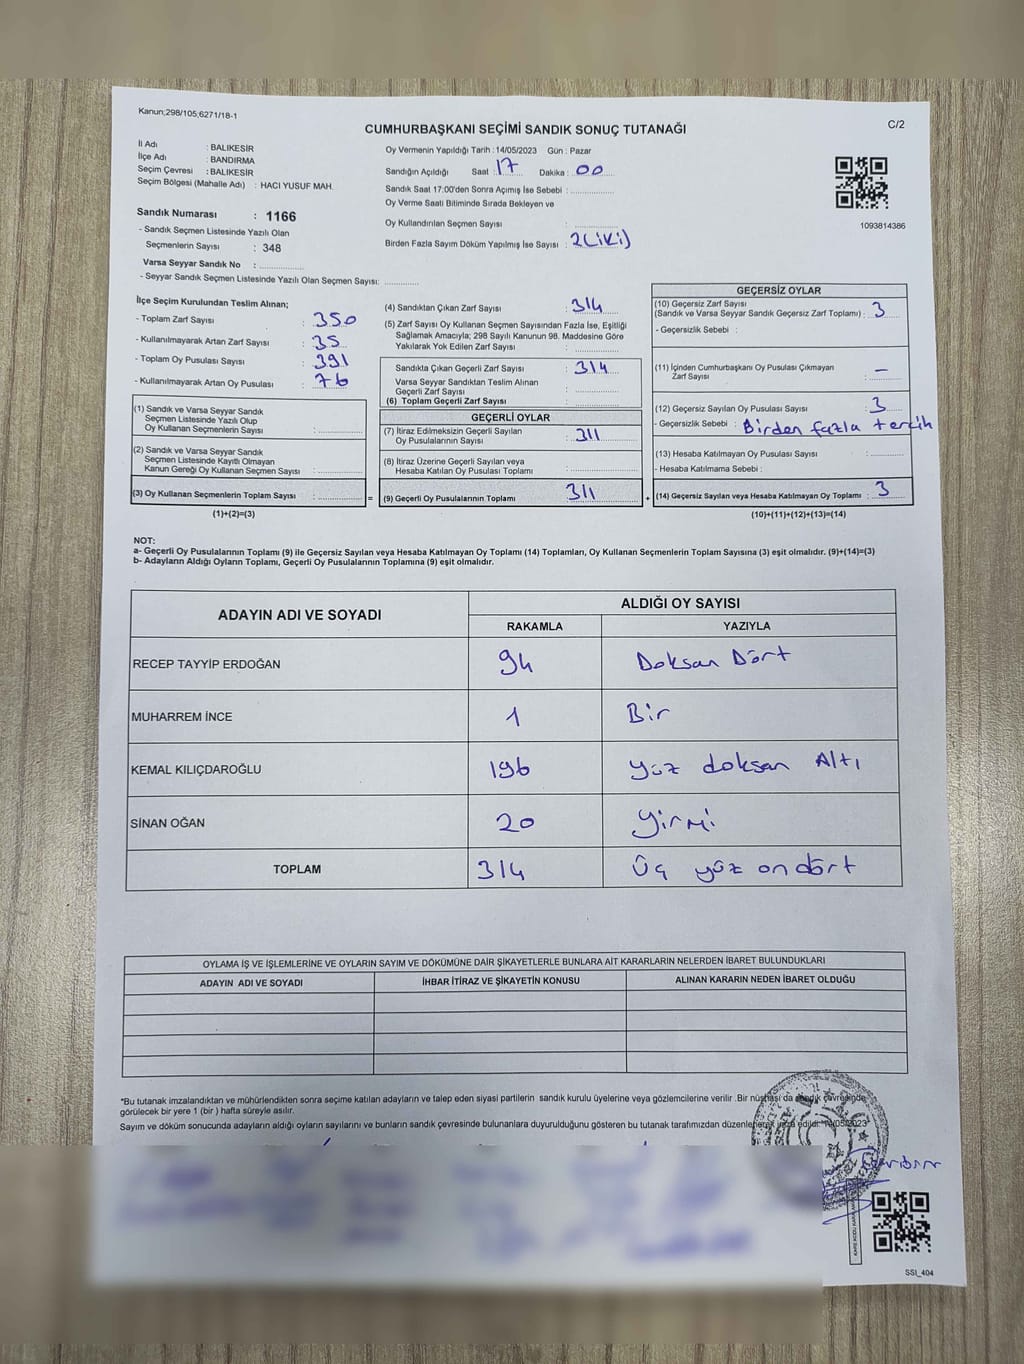 Kanun;298/105;6271/18-1
C/2
CUMHURBAŞKANI SEÇİMİ SANDIK SONUÇ TUTANAĞI
İl Adı : BALIKESİR
İlçe Adı : BANDIRMA
Seçim Çevresi : BALIKESİR
Seçim Bölgesi (Mahalle Adı) : HACI YUSUF MAH.
Sandık Numarası : 1166
- Sandık Seçmen Listesinde Yazılı Olan
Seçmenlerin Sayısı : 348
Varsa Seyyar Sandık No : ..............
- Seyyar Sandık Seçmen Listesinde Yazılı Olan Seçmen Sayısı: ............
Oy Vermenin Yapıldığı Tarih : 14/05/2023 Gün : Pazar
Sandığın Açıldığı Saat : 17 Dakika : 00
Sandık Saat 17:00'den Sonra Açımış İse Sebebi : ..............
Oy Verme Saati Bitiminde Sırada Bekleyen ve
Oy Kullandırılan Seçmen Sayısı : ..............
Birden Fazla Sayım Döküm Yapılmış İse Sayısı : 2(iki)
1093814386
İlçe Seçim Kurulundan Teslim Alınan;
- Toplam Zarf Sayısı : 350
- Kullanılmayarak Artan Zarf Sayısı : 35
- Toplam Oy Pusulası Sayısı : 391
- Kullanılmayarak Artan Oy Pusulası : 76
(1) Sandık ve Varsa Seyyar Sandık
Seçmen Listesinde Yazılı Olup
Oy Kullanan Seçmenlerin Sayısı : ..............
(2) Sandık ve Varsa Seyyar Sandık
Seçmen Listesinde Kayıtlı Olmayan
Kanun Gereği Oy Kullanan Seçmen Sayısı : ..............
(3) Oy Kullanan Seçmenlerin Toplam Sayısı : .............. =
(1)+(2)=(3)
(4) Sandıktan Çıkan Zarf Sayısı : 314
(5) Zarf Sayısı Oy Kullanan Seçmen Sayısından Fazla İse, Eşitliği
Sağlamak Amacıyla; 298 Sayılı Kanunun 98. Maddesine Göre
Yakılarak Yok Edilen Zarf Sayısı : ..............
Sandıkta Çıkan Geçerli Zarf Sayısı : 314
Varsa Seyyar Sandıktan Teslim Alınan
Geçerli Zarf Sayısı : ..............
(6) Toplam Geçerli Zarf Sayısı :
GEÇERLİ OYLAR
(7) İtiraz Edilmeksizin Geçerli Sayılan
Oy Pusulalarının Sayısı : 311
(8) İtiraz Üzerine Geçerli Sayılan veya
Hesaba Katılan Oy Pusulası Toplamı : ..............
(9) Geçerli Oy Pusulalarının Toplamı 311 +
GEÇERSİZ OYLAR
(10) Geçersiz Zarf Sayısı
(Sandık ve Varsa Seyyar Sandık Geçersiz Zarf Toplamı) : 3
- Geçersizlik Sebebi :
(11) İçinden Cumhurbaşkanı Oy Pusulası Çıkmayan
Zarf Sayısı : –
(12) Geçersiz Sayılan Oy Pusulası Sayısı : 3
- Geçersizlik Sebebi : Birden fazla tercih
(13) Hesaba Katılmayan Oy Pusulası Sayısı : ..............
- Hesaba Katılmama Sebebi :
(14) Geçersiz Sayılan veya Hesaba Katılmayan Oy Toplamı : 3
(10)+(11)+(12)+(13)=(14)
NOT:
a- Geçerli Oy Pusulalarının Toplamı (9) ile Geçersiz Sayılan veya Hesaba Katılmayan Oy Toplamı (14) Toplamları, Oy Kullanan Seçmenlerin Toplam Sayısına (3) eşit olmalıdır. (9)+(14)=(3)
b- Adayların Aldığı Oyların Toplamı, Geçerli Oy Pusulalarının Toplamına (9) eşit olmalıdır.
ADAYIN ADI VE SOYADI
ALDIĞI OY SAYISI
RAKAMLA YAZIYLA
RECEP TAYYİP ERDOĞAN 94 Doksan Dört
MUHARREM İNCE 1 Bir
KEMAL KILIÇDAROĞLU 196 Yüz doksan Altı
SİNAN OĞAN 20 Yirmi
TOPLAM 314 Üç yüz ondört
OYLAMA İŞ VE İŞLEMLERİNE VE OYLARIN SAYIM VE DÖKÜMÜNE DAİR ŞİKAYETLERLE BUNLARA AİT KARARLARIN NELERDEN İBARET BULUNDUKLARI
ADAYIN ADI VE SOYADI İHBAR İTİRAZ VE ŞİKAYETİN KONUSU ALINAN KARARIN NEDEN İBARET OLDUĞU
*Bu tutanak imzalandıktan ve mühürlendikten sonra seçime katılan adayların ve talep eden siyasi partilerin sandık kurulu üyelerine veya gözlemcilerine verilir .Bir nüshası da sandık çevresinde
görülecek bir yere 1 (bir ) hafta süreyle asılır.
Sayım ve döküm sonucunda adayların aldığı oyların sayılarını ve bunların sandık çevresinde bulunanlara duyurulduğunu gösteren bu tutanak tarafımızdan düzenlenerek imza edildi. 14/05/2023
SSI_404